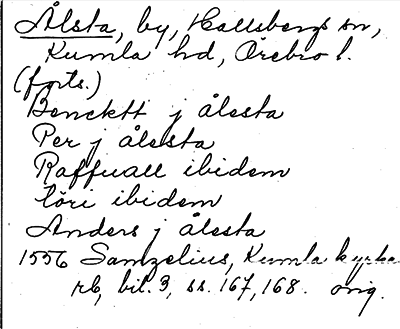 Ålsta, by, Hallsbergs sn,
Kumla hd, Örebro l.
(forts.)
Bencktt j ålesta
Per j ålesta
Raffuall ibidem
löri ibidem
Anders j ålesta
1556 Samzelius, Kumla kyrka
rb, bil. 3, ss. 167, 168. orig.